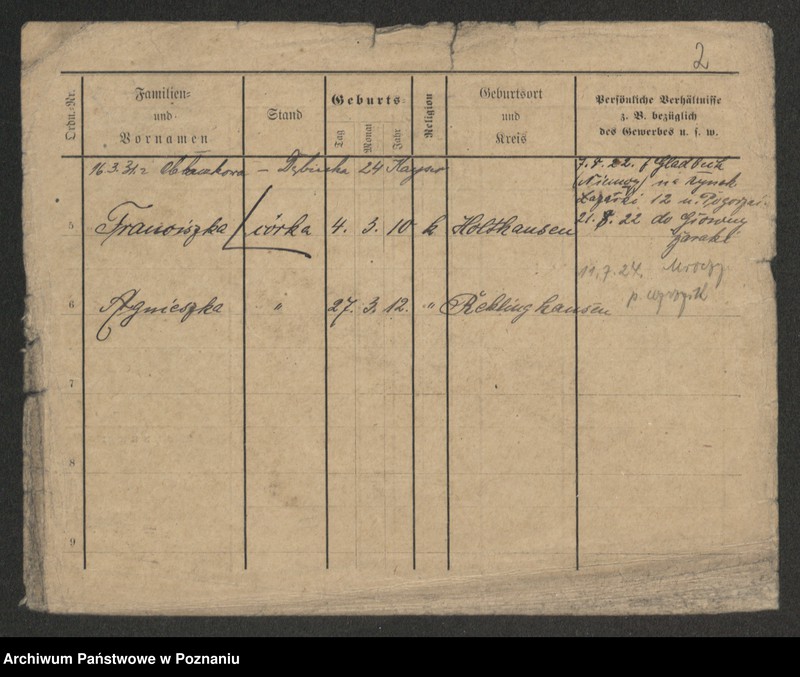 2
Ordn.-Nr.
Familien-
und
Vornamen
Stand
Geburts-
Tag
Monat
Jahr
Religion
Geburtsort
und
Kreis
Persönliche Verhältnisse
z. B. bezüglich
des Gewerbes u. s. w.
16.3.31. z – 24
22. f Gladbeck
(Niemcy) na Rynek
Łazarski 12 u
21. 8. 22 do Główny
5 Franciszka córka 4. 3. 10 k Holthausen
11. 7. 24.
6 Agnieszka " 27. 3. 12. " Recklinghausen
7
8
9
Archiwum Państwowe w Poznaniu